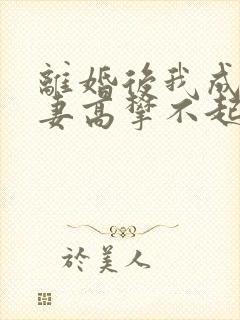 離婚後我成
妻高攀不起
於美人